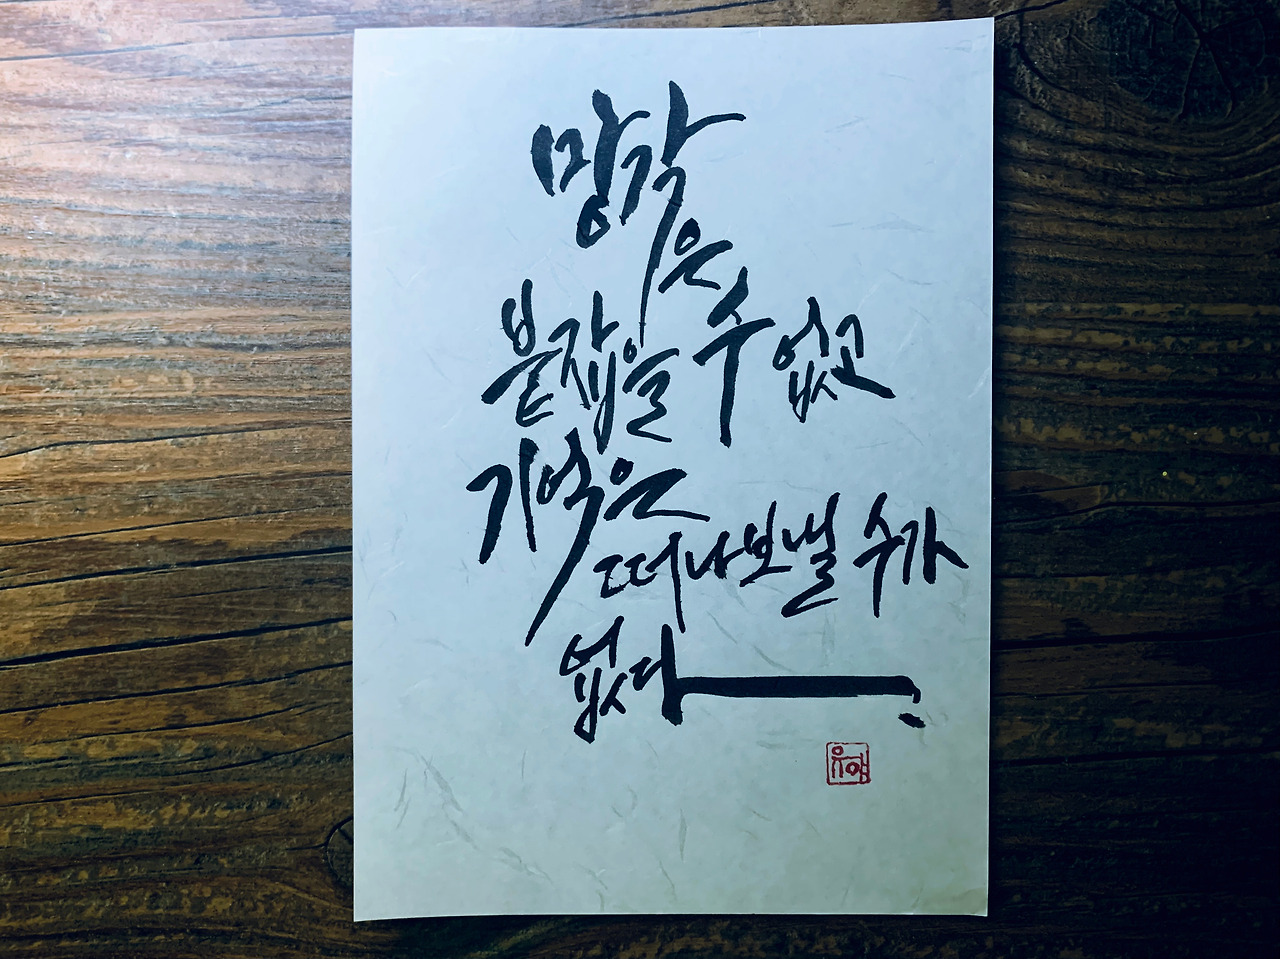 망각은
붙잡을 수 없고
기억은
떠나보낼 수가
없다.